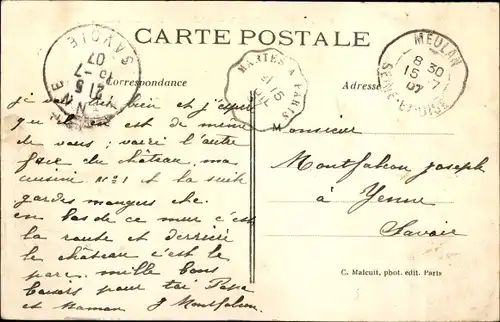 CARTE POSTALE
Correspondance
Adresse
SAVOIE
YENNE
21 5
15 -7
07
MANTES A PARIS
15
MEULAN
8 30
15 -7
07
SEINE-ET-OISE
je vais très bien et j'espère
qu'il en est de même
de vous; voici l'autre
face du château, ma
cuisine No 1 et la suite
gardes mangers etc.
en bas de ce mur c'est
la route et derrière
le château c'est le
parc. mille bons
baisers pour toi Papa
et Maman J Montfalcon.
Monsieur
Montfalcon Joseph
à Yenne
Savoie
C. Malcuit, phot. edit. Paris